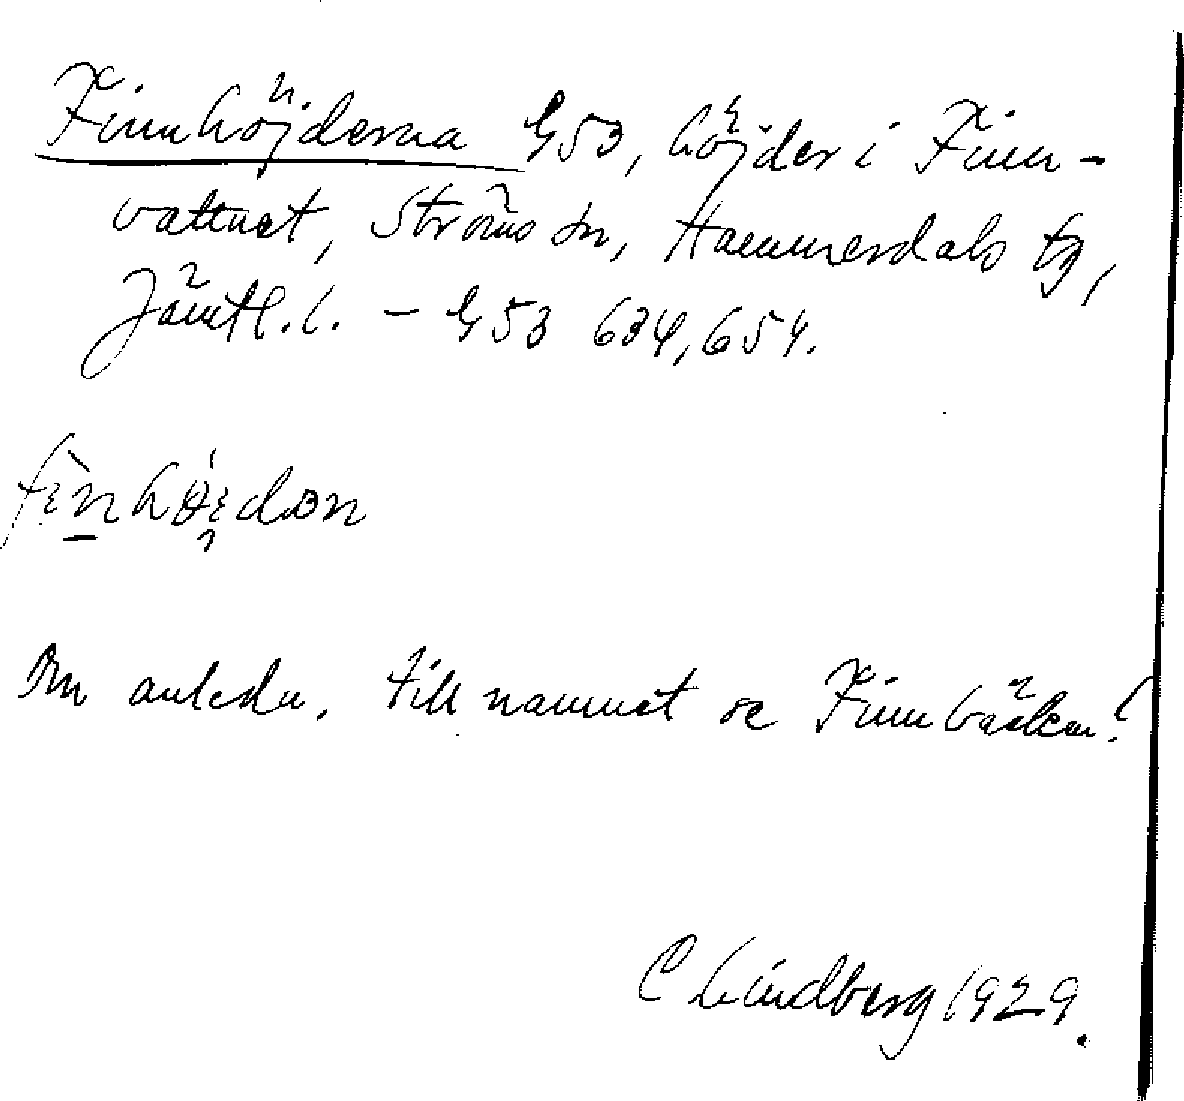 Finnhöjderna G53, höjder i Finn-
vattnet, Ströms sn, Hammerdals tg,
Jämtl. l. – G53 634,654.
Om anledn. till namnet se Finnbäcken!
C Lindberg 1929.